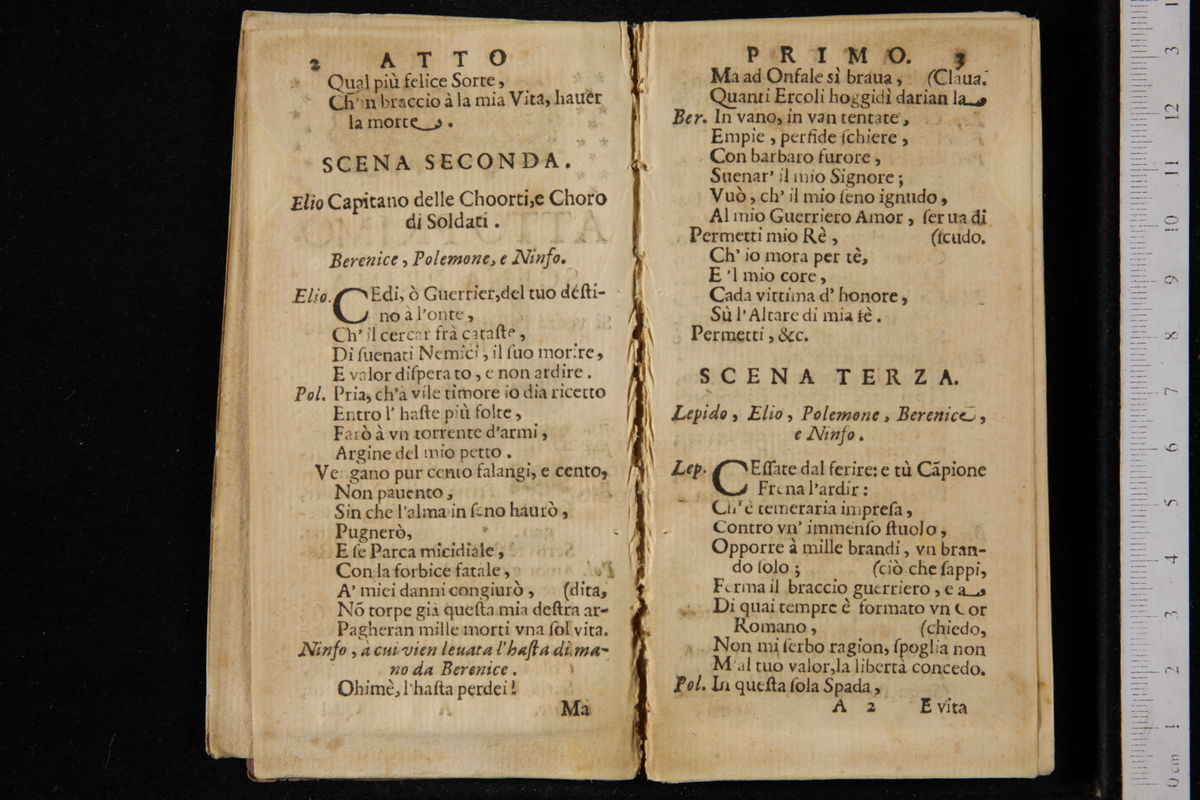 2 ATTO
Qual più felice Sorte,
Ch'in braccio à la mia Vita, hauer
la morte.
SCENA SECONDA.
Elio Capitano delle Choorti, e Choro
di Soldati.
Berenice, Polemone, e Ninfo.
Elio. CEdi, ò Guerrier, del tuo désti-
no à l'onte,
Ch'il cercar frà cataste,
Di suenati Nemici, il suo morire,
E valor disperato, e non ardire.
Pol. Pria, ch'à vile timore io dia ricetto
Entro l' haste più folte,
Farò à vn torrente d'armi,
Argine del mio petto.
Vengano pur cento falangi, e cento,
Non pauento,
Sin che l'alma in seno haurò,
Pugnerò,
E se Parca micidiale,
Con la forbice fatale,
A' miei danni congiurò, (dita,
Nõ torpe già questa mia destra ar-
Pagheran mille morti vna sol vita.
Ninfo, à cui vien leuata l'hasta di ma-
no da Berenice.
Ohimè, l'hasta perdei!
Ma
PRIMO. 3
Ma ad Onfale sì braua, (Claua.
Quanti Ercoli hoggidì darian la
Ber. In vano, in van tentate,
Empie, perfide schiere,
Con barbaro furore,
Suenar' il mio Signore;
Vuò, ch' il mio seno ignudo,
Al mio Guerriero Amor, serua di
Permetti mio Rè, (scudo.
Ch' io mora per tè,
E 'l mio core,
Cada vittima d' honore,
Sù l'Altare di mia fè.
Permetti, &c.
SCENA TERZA.
Lepido, Elio, Polemone, Berenice,
e Ninfo.
Lep. CEssate dal ferire: e tù Cãpione
Frena l'ardir:
Ch'è temeraria impresa,
Contro vn' immenso stuolo,
Opporre à mille brandi, vn bran-
do solo; (ciò che sappi,
Ferma il braccio guerriero, e a
Di quai tempre è formato vn Cor
Romano, (chiedo,
Non mi serbo ragion, spoglia non
M'al tuo valor, la libertà concedo.
Pol. In questa sola Spada,
A 2 E vita